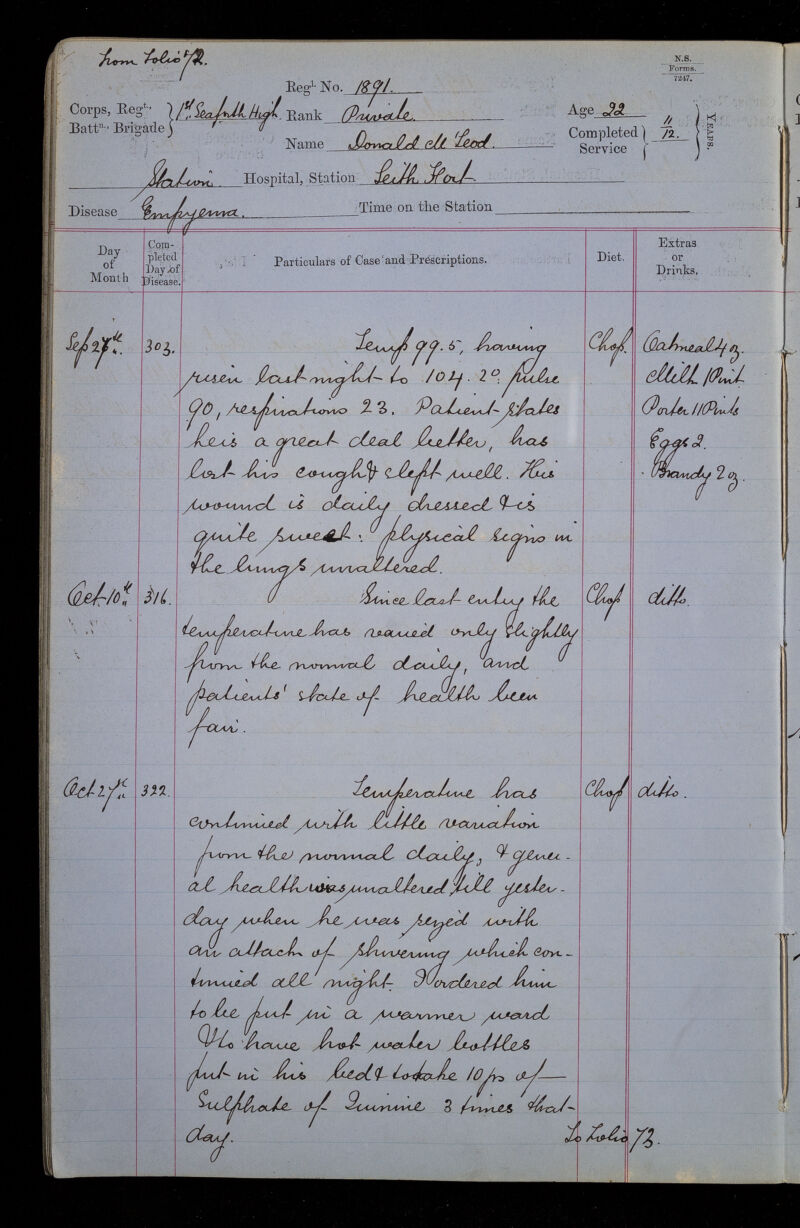 from Folio 72.
N.S.
Forms.
7247.
Regl. No. 1891.
Corps, Regt., Battn., Brigade } 1st Seaforth High. Rank Private. Age 22
Name Donald Mc Leod. Completed Service } 11/12. YEARS.
Station. Hospital, Station Leith Fort
Disease Empyema. Time on the Station
Day of Month
Completed Day of Disease.
Particulars of Case and Prescriptions.
Diet.
Extras or Drinks.
303. Temp 99.5, having Chop. Oatmeal 4 oz.
risen last night to 104.2°. pulse Milk 1 Pint
90, respirations 23. Patient states Porter 11 Pints
he is a great deal better, has Eggs 2.
lost his cough & slept well. His Brandy 2 oz.
wound is daily dressed & is
quite sweet: physical signs in
the lungs unaltered.
Oct 10th 316. Since last entry the Chop ditto.
temperature has varied only slightly
from the normal daily, and
patients' state of health been
fair.
Oct 27th 322. Temperature has Chop ditto.
continued with little variation
from the normal daily, & gener-
al health was unaltered till yester-
day when he was seyed with
an attack of shivering which con-
tinued all night. I ordered him
to be put in a warmer ward
& to have hot water bottles
put in his bed & to take 10 grs of
Sulphate of Quinine 3 times that
day. To Folio 73.